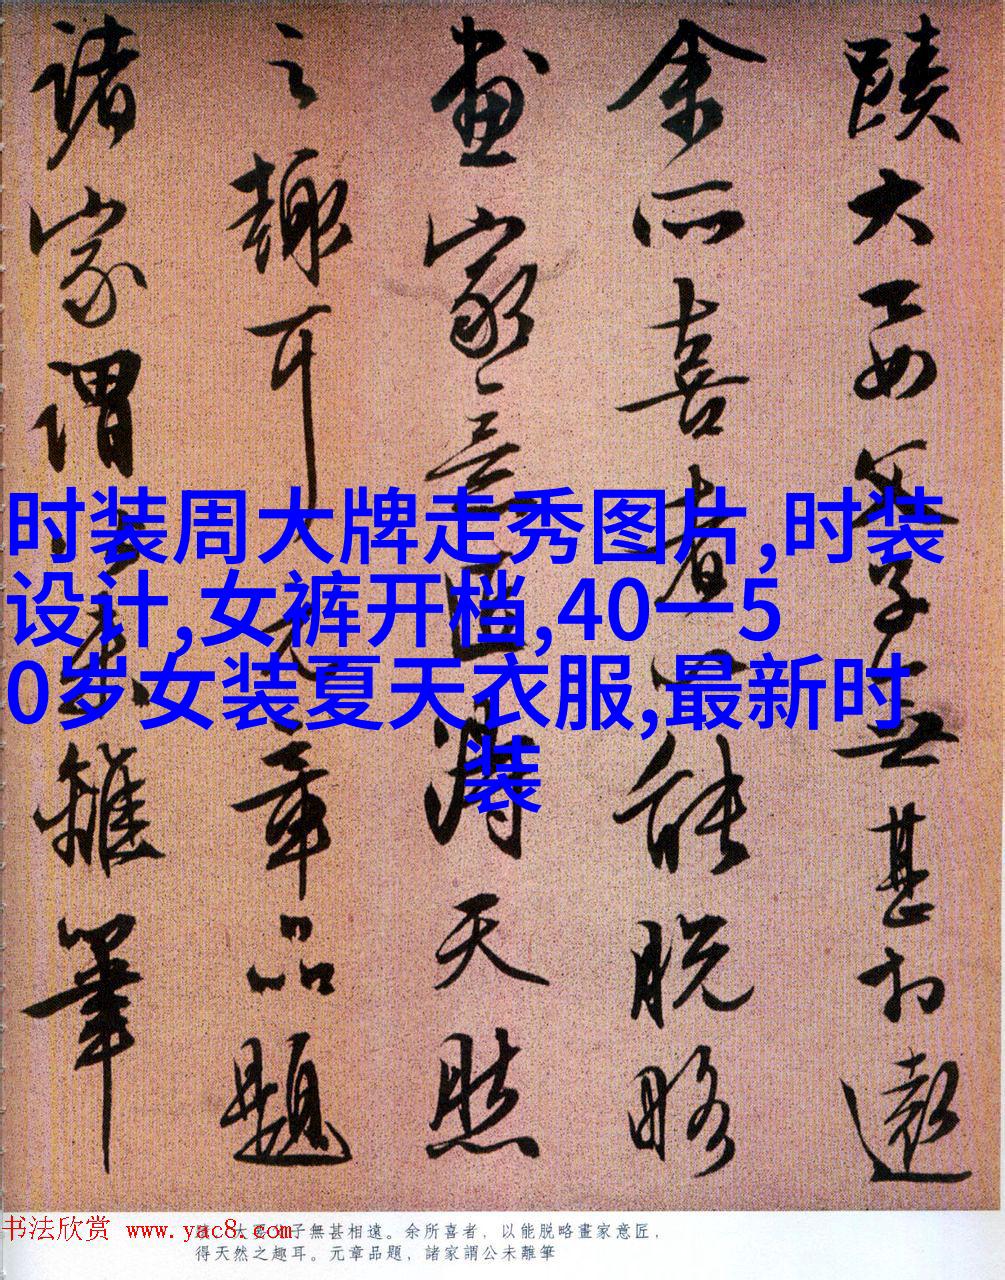 蹟大要父子無甚相遠
余所喜者以能脱略
畫家意匠得天然
之趣耳元章品題
諸家謂公未離筆
时装周大牌走秀图片,时装
设计,女裤开档,40一5
0岁女装夏天衣服,最新时
装
书法欣赏 www.yac8.com
大要父子無甚相遠。余所喜者，以能脱略畫家意匠，
得天然之趣耳。元章品題，諸家謂公未離筆